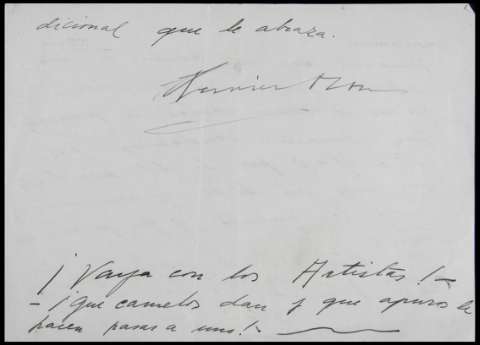 dicional que le abraza.
¡Vaya con los Artistas!-
- ¡que camelos dan y que apuros le
hacen pasar a uno!-